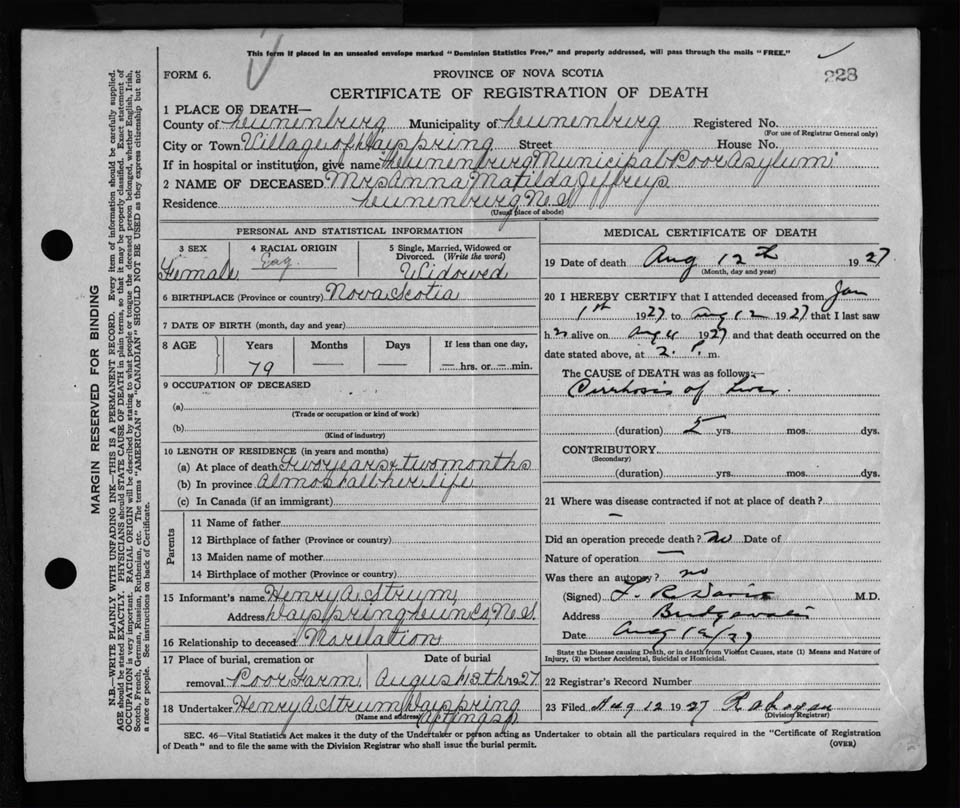 This form if placed in an unsealed envelope marked "Dominion Statistics Free," and properly addressed, will pass through the mails "FREE."
FORM 6.
PROVINCE OF NOVA SCOTIA
228
CERTIFICATE OF REGISTRATION OF DEATH
1 PLACE OF DEATH—
County of Lunenburg Municipality of Lunenburg Registered No.
(For use of Registrar General only)
City or Town Village of Dayspring Street House No.
If in hospital or institution, give name "Lunenburg Municipal Poor Asylum"
2 NAME OF DECEASED Mrs Anna Matilda Jeffreys
Residence Lunenburg N.S.
(Usual place of abode)
PERSONAL AND STATISTICAL INFORMATION
3 SEX
Female
4 RACIAL ORIGIN
Eng.
5 Single, Married, Widowed or Divorced. (Write the word)
Widowed
6 BIRTHPLACE (Province or country) Nova Scotia
7 DATE OF BIRTH (month, day and year)
8 AGE Years Months Days If less than one day,
79 — — — hrs. or — min.
9 OCCUPATION OF DECEASED
(a)
(Trade or occupation or kind of work)
(b)
(Kind of industry)
10 LENGTH OF RESIDENCE (in years and months)
(a) At place of death two months
(b) In province almost all her life
(c) In Canada (if an immigrant)
Parents
11 Name of father
12 Birthplace of father (Province or country)
13 Maiden name of mother
14 Birthplace of mother (Province or country)
15 Informant's name Henry A Strum
Address Dayspring Lun Co, N.S.
16 Relationship to deceased No relation
17 Place of burial, cremation or removal Poor Farm
Date of burial
August 13th 1927
18 Undertaker Henry A Strum Dayspring
(Name and address)
MEDICAL CERTIFICATE OF DEATH
19 Date of death Aug 12th 1927
(Month, day and year)
20 I HEREBY CERTIFY that I attended deceased from Jan
1st 1927 to Aug 12 1927 that I last saw
h er alive on Aug 1927 and that death occurred on the
date stated above, at 2. P. m.
The CAUSE of DEATH was as follows:—
Cirrhosis of Liver.
(duration) 5 yrs. mos. dys.
CONTRIBUTORY
(Secondary)
(duration) yrs. mos. dys.
21 Where was disease contracted if not at place of death?
—
Did an operation precede death? No Date of
Nature of operation —
Was there an autopsy? no
(Signed) M.D.
Address Bridgewater
Date Aug 12/27
State the Disease causing Death, or in death from Violent Causes, state (1) Means and Nature of Injury, (2) whether Accidental, Suicidal or Homicidal.
22 Registrar's Record Number
23 Filed Aug 12 1927
(Division Registrar)
SEC. 46—Vital Statistics Act makes it the duty of the Undertaker or person acting as Undertaker to obtain all the particulars required in the "Certificate of Registration
of Death" and to file the same with the Division Registrar who shall issue the burial permit.
(OVER)
MARGIN RESERVED FOR BINDING
N.B.—WRITE PLAINLY WITH UNFADING INK—THIS IS A PERMANENT RECORD. Every item of information should be carefully supplied.
AGE should be stated EXACTLY. PHYSICIANS should STATE CAUSE OF DEATH in plain terms, so that it may be properly classified. Exact statement of
OCCUPATION is very important. RACIAL ORIGIN will be described by stating to what people or tongue the deceased person belonged, whether English, Irish,
Scotch, French, German, Russian, Ruthenian, etc. The terms "AMERICAN" or "CANADIAN" SHOULD NOT BE USED as they express citizenship but not
a race or people. See instructions on back of Certificate.